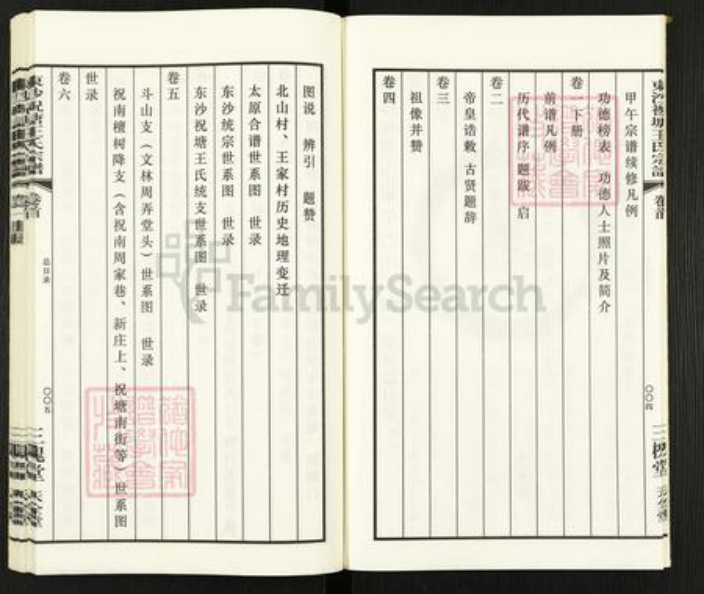 東沙祝塘王氏宗譜
卷首
〇〇四
三槐堂
甲午宗谱续修凡例
功德榜表 功德人士照片及简介
卷一下册
前谱凡例
历代谱序 题跋 启
卷二
帝皇诰敕 古贤题辞
卷三
祖像并赞
卷四
图说 辨引 题赞
北山村、王家村历史地理变迁
太原合谱世系图 世录
东沙统宗世系图 世录
东沙祝塘王氏统支世系图 世录
卷五
斗山支（文林周弄堂头）世系图 世录
祝南檀树降支（含祝南周家巷、新庄上、祝塘南街等）世系图
世录
卷六
总目录
〇〇五
三槐堂
FamilySearch